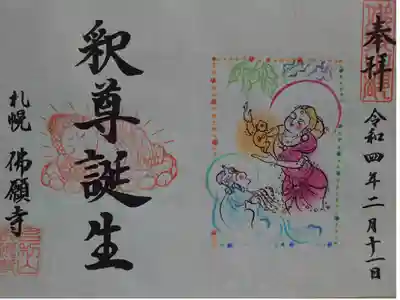 奉拝
令和四年二月十一日
釈尊誕生
札幌 佛願寺